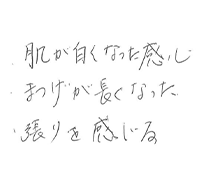 ・肌が白くなった感じ
・まつげが長くなった
・張りを感じる